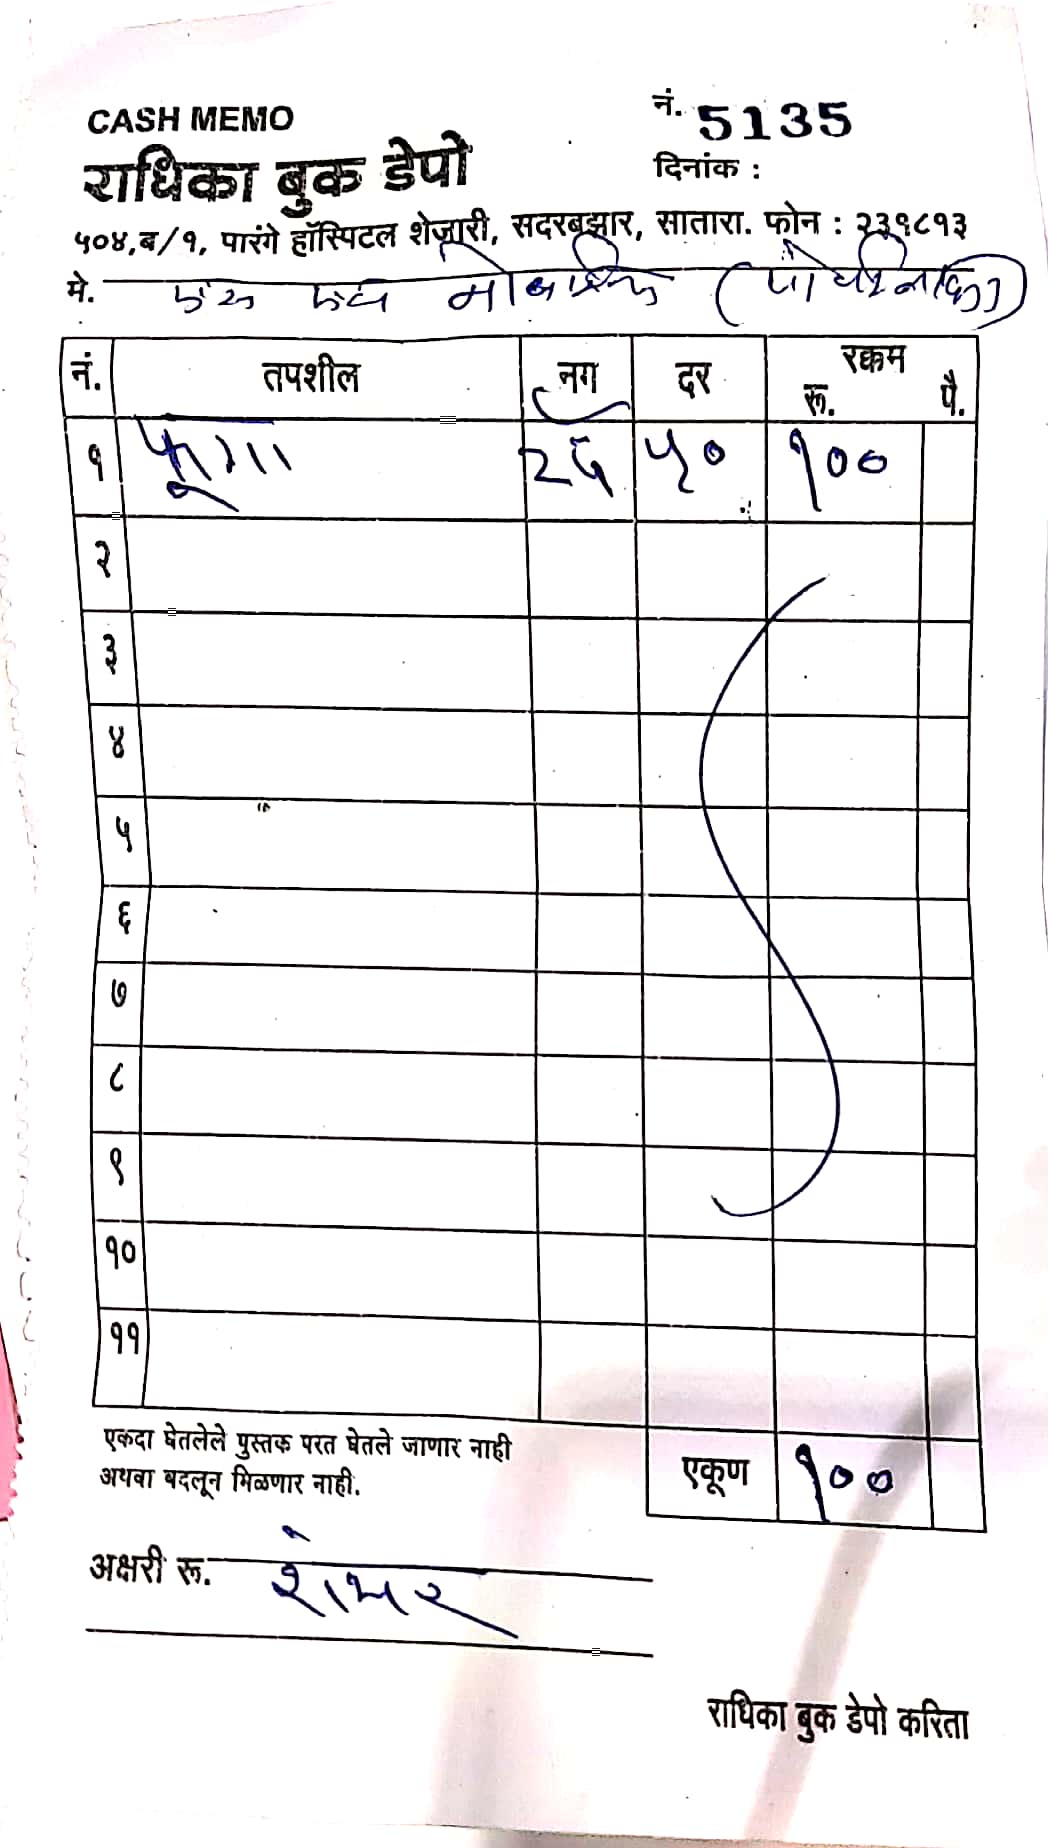 CASH MEMO
नं. 5135
राधिका बुक डेपो
दिनांक :
५०४,ब/१, पारंगे हॉस्पिटल शेजारी, सदरबझार, सातारा. फोन : २३९८१३
मे.
नं. तपशील नग दर रक्कम
रू. पै.
१ फूगा ५० १००
२
३
४
५
६
७
८
९
१०
११
एकदा घेतलेले पुस्तक परत घेतले जाणार नाही
अथवा बदलून मिळणार नाही.
एकूण १००
अक्षरी रू. शंभर
राधिका बुक डेपो करिता